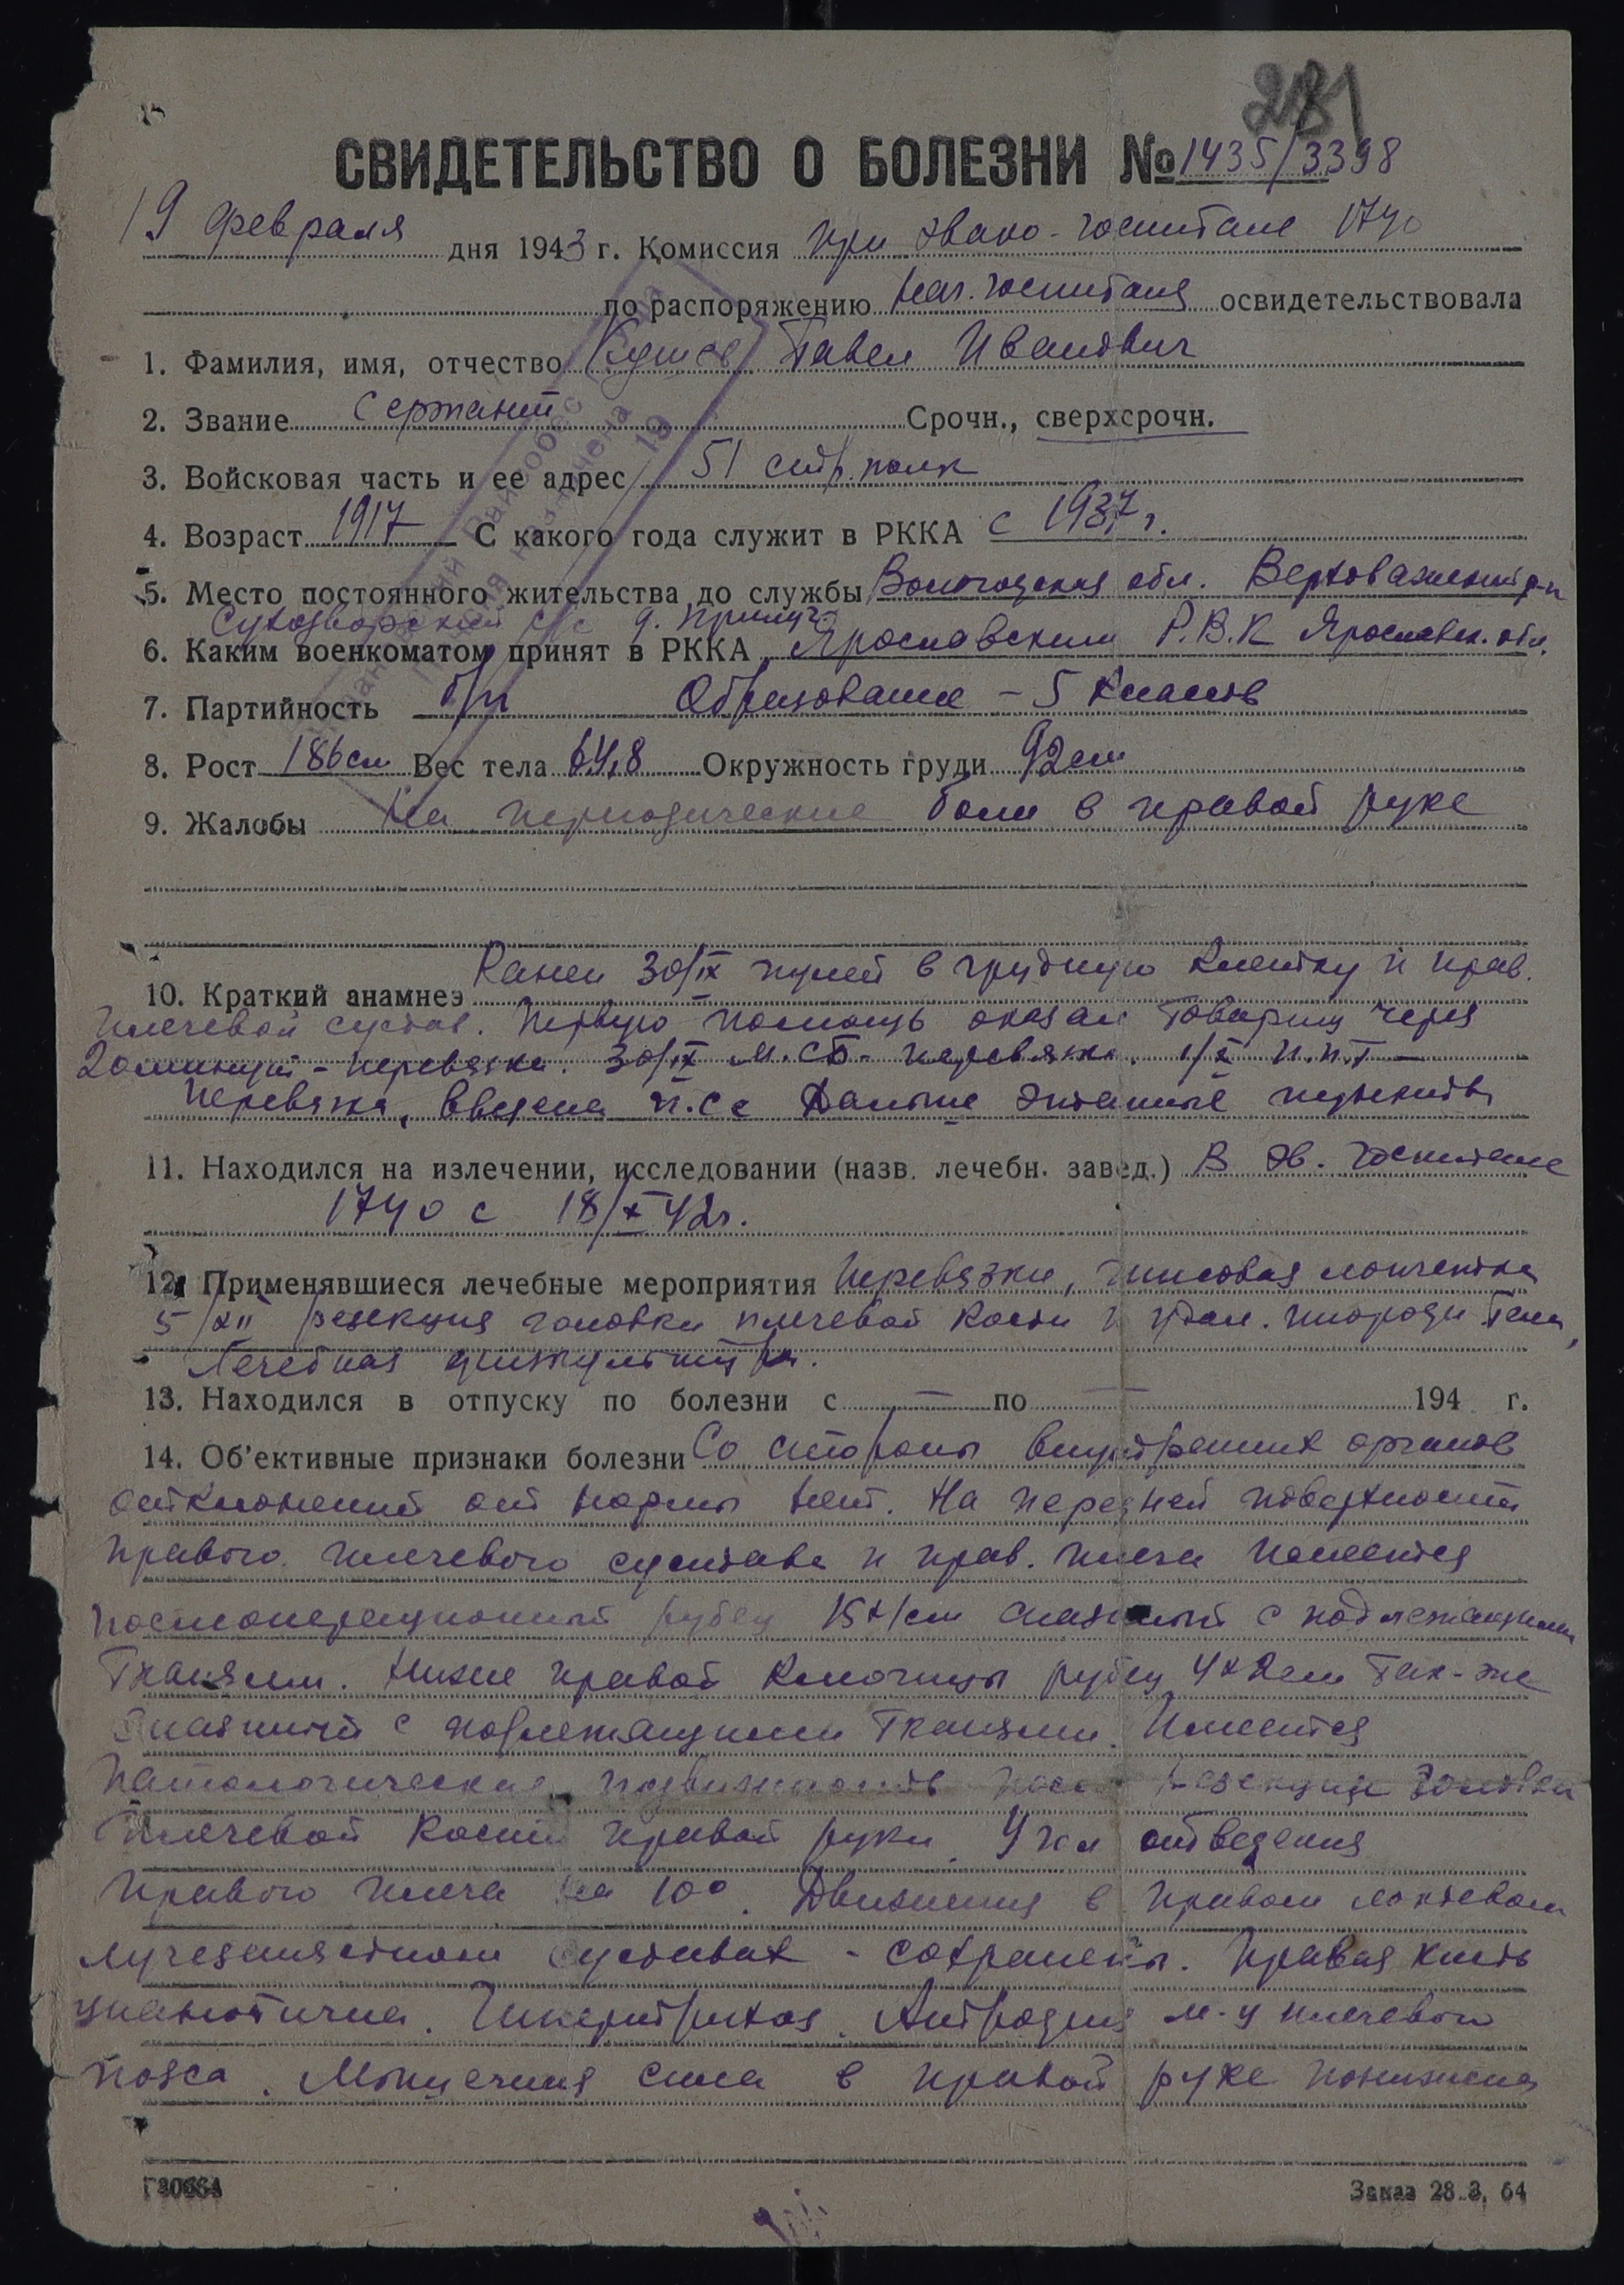 281
СВИДЕТЕЛЬСТВО О БОЛЕЗНИ № 1435/3398
19 февраля дня 1943 г. Комиссия при эвако-госпитале 1740
по распоряжению нач. госпиталя освидетельствовала
1. Фамилия, имя, отчество Павел Иванович
2. Звание сержант Срочн., сверхсрочн.
3. Войсковая часть и ее адрес 51 стр. полк
4. Возраст 1917 С какого года служит в РККА с 1937 г.
5. Место постоянного жительства до службы Вологодская обл. Верховажский р-н
с/с д.
6. Каким военкоматом принят в РККА Ярославским Р.В.К Ярославск. обл.
7. Партийность б/п Образование - 5 классов
8. Рост 186 см Вес тела 64,8 Окружность груди 92 см
9. Жалобы На периодические боли в правой руке
10. Краткий анамнез Ранен 30/IX пулей в грудную клетку и прав.
плечевой сустав. Первую помощь оказал товарищ через
20 минут - перевязка. 30/IX М.СБ - перевязка. 1/X П.П.Г -
перевязка, введена п.с.с Дальше этапные пункты
11. Находился на излечении, исследовании (назв. лечебн. завед.) В эв. госпитале
1740 с 18/X 42г.
12. Применявшиеся лечебные мероприятия Перевязки, гипсовая лонгетка
5/XII резекция головки плечевой кости и удал. инородн тела,
Лечебная физкультура.
13. Находился в отпуску по болезни с — по — 194 г.
14. Об'ективные признаки болезни Со стороны внутренних органов
отклонений от нормы нет. На передней поверхности
правого плечевого сустава и прав. плеча имеется
послеоперационный рубец 15х1см спаянный с подлежащими
тканями. Ниже правой ключицы рубец 4х2см так-же
спаянный с подлежащими тканями. Имеется
патологическая подвижность после резекции головки
плечевой кости правой руки. Угол отведения
правого плеча на 10°. Движения в правом локтевом
лучезапястном суставах - сохранены. Правая кисть
цианотична. Гипергидроз. Атрофия м-ц плечевого
пояса. Мышечная сила в правой руке понижена
Г30664
Заказ 28.3. 64